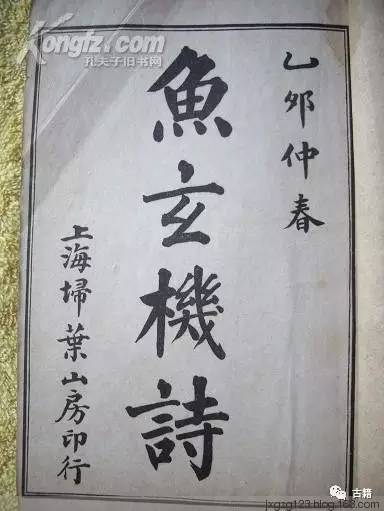 乙卯仲春
魚玄機詩
上海埽葉山房印行
Kongfz.com
孔夫子旧书网
古籍
jxgzg123.blog.163.com